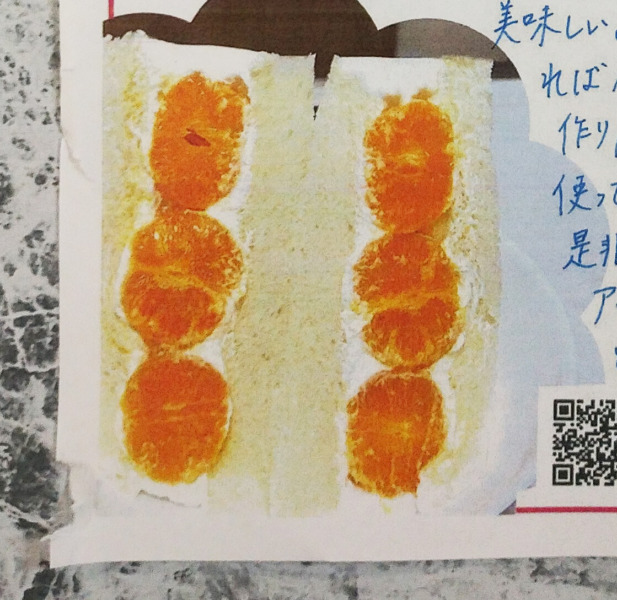 美味しい
れば
作り
使って
是非
ア